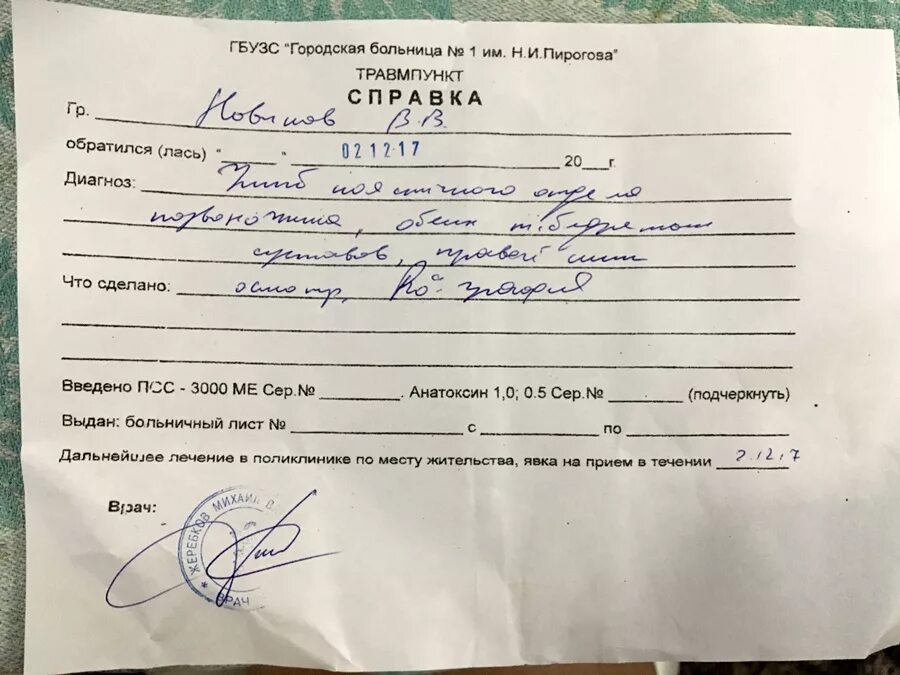 ГБУЗС "Городская больница № 1 им. Н.И.Пирогова"
ТРАВМПУНКТ
СПРАВКА
Гр. Новиков В.В.
обратился (лась) "____" 02 12 17 20___г.
Диагноз: Ушиб поясничного отдела
позвоночника, обеих т/бедренных
суставов, правой
Что сделано: осмотр, Rö-графия
Введено ПСС - 3000 МЕ Сер.№ ________. Анатоксин 1,0; 0.5 Сер.№ ________ (подчеркнуть)
Выдан: больничный лист № ________ с ________ по ________
Дальнейшее лечение в поликлинике по месту жительства, явка на прием в течении 2.12.17
Врач:
ЖЕРЕБКОВ МИХАИЛ
ВРАЧ